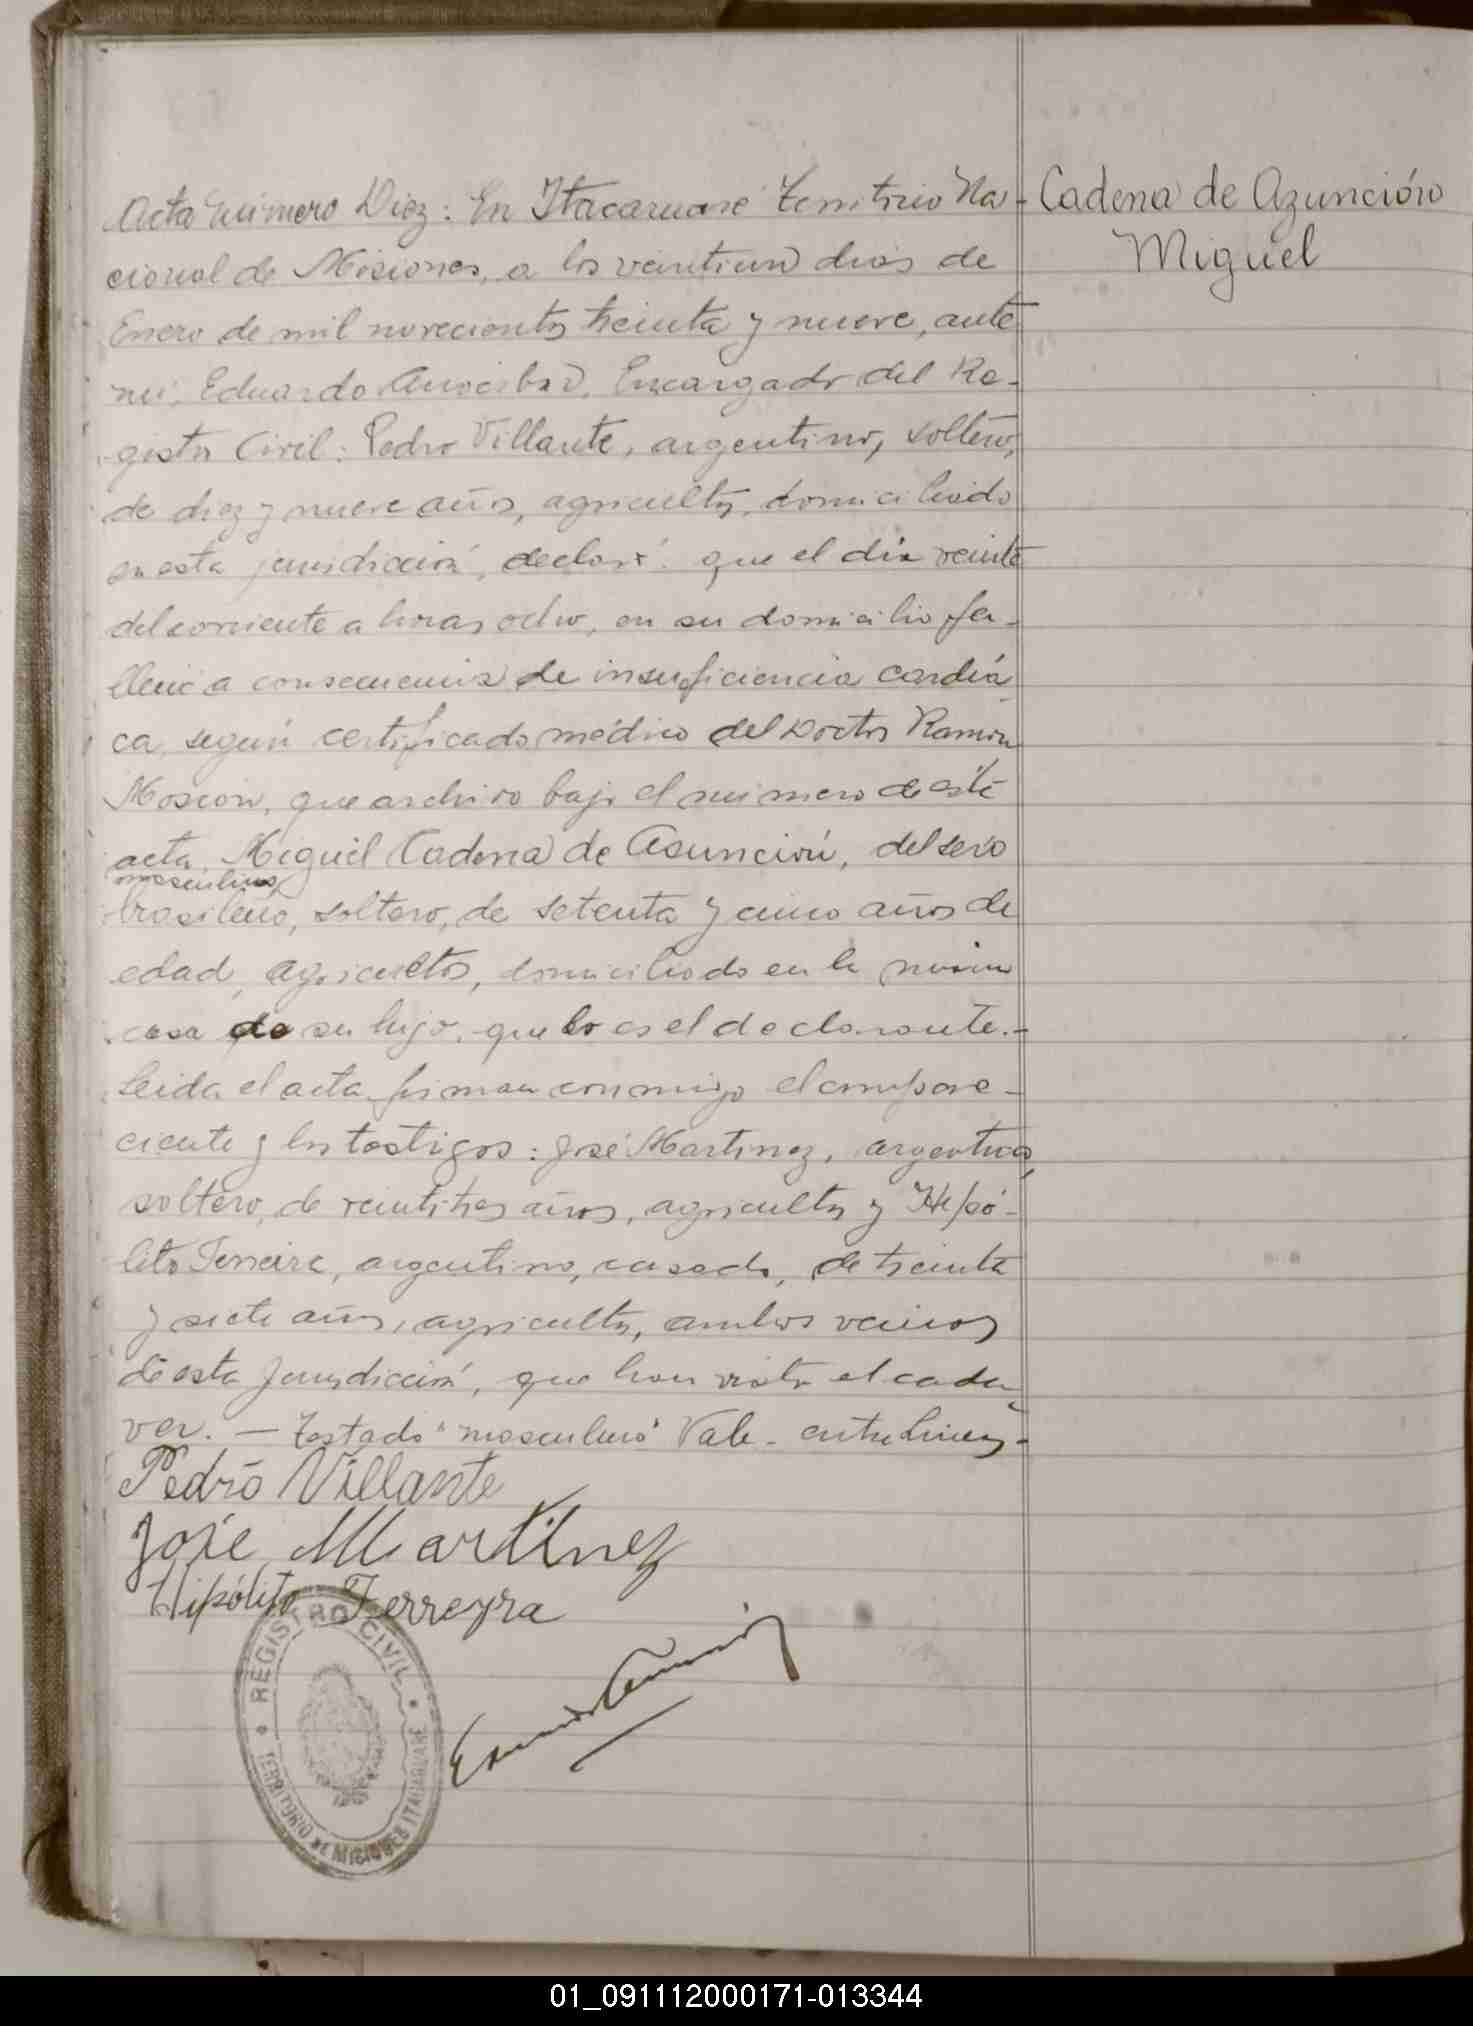 Acta número Diez: En Itacaruaré Territorio Na-
cional de Misiones, a los veintiun dias de
Enero de mil novecientos treinta y nueve, ante
mi, Eduardo Encargado del Re-
gistro Civil: Pedro Villante, argentino, soltero,
de diez y nueve años, agricultor, domiciliado
en esta jurisdicción, declaró: que el día veinte
del corriente a horas ocho, en su domicilio fa-
lleció a consecuencia de insuficiencia cardía-
ca, según certificado médico del Doctor Ramón
que archivo bajo el número de este
acta, Miguel Cadena de Asunción, del sexo
masculino
brasileño, soltero, de setenta y cinco años de
edad, agricultor, domiciliado en la misma
casa de su hijo, que lo es el declarante.-
Leida el acta firman conmigo el compare-
ciente y los testigos: José Martinez, argentino,
soltero, de veintitres años, agricultor y Hipó-
lito Ferreira, argentino, casado, de treinta
y siete años, agricultor, ambos vecinos
de esta jurisdicción, que han visto el cada-
ver. — Testado "masculino" Vale - entre lineas -
Pedro Villante
José Martinez
Hipólito Ferreyra
REGISTRO CIVIL
TERRITORIO DE MISIONES ITACARUARE
Cadena de Azunción
Miguel
01_091112000171-013344